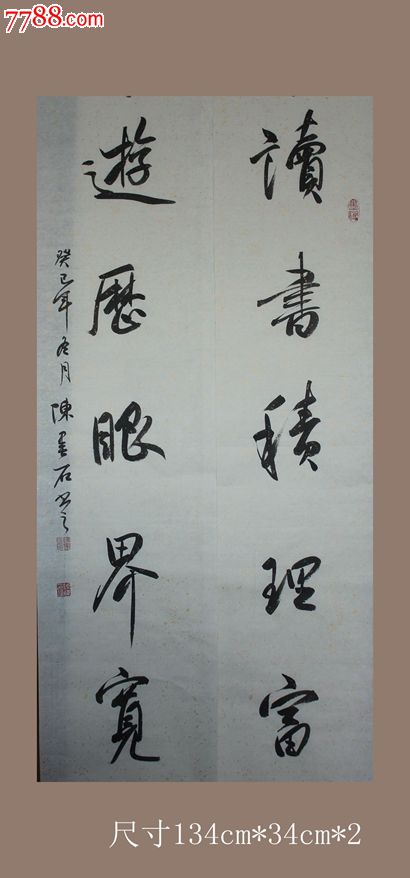 7788.com
讀書積理富
遊歷眼界寬
癸巳年冬月陳墨石書之
尺寸134cm*34cm*2